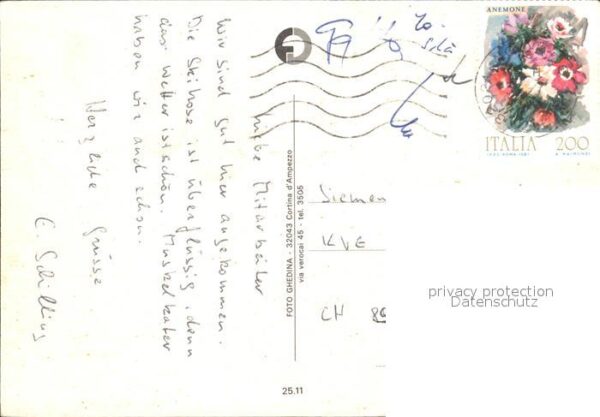 Liebe Mitarbeiter
Wir sind gut hier angekommen.
Die Skihose ist überflüssig, denn
das Wetter ist schön. Muskelkater
haben wir auch schon.
Herzliche Grüsse
E. Schilling
FOTO GHEDINA - 32043 Cortina d'Ampezzo
via verocai 45 - tel. 3505
25.11
ANEMONE
ITALIA 200
Siemen
KVE
CH 86
privacy protection
Datenschutz